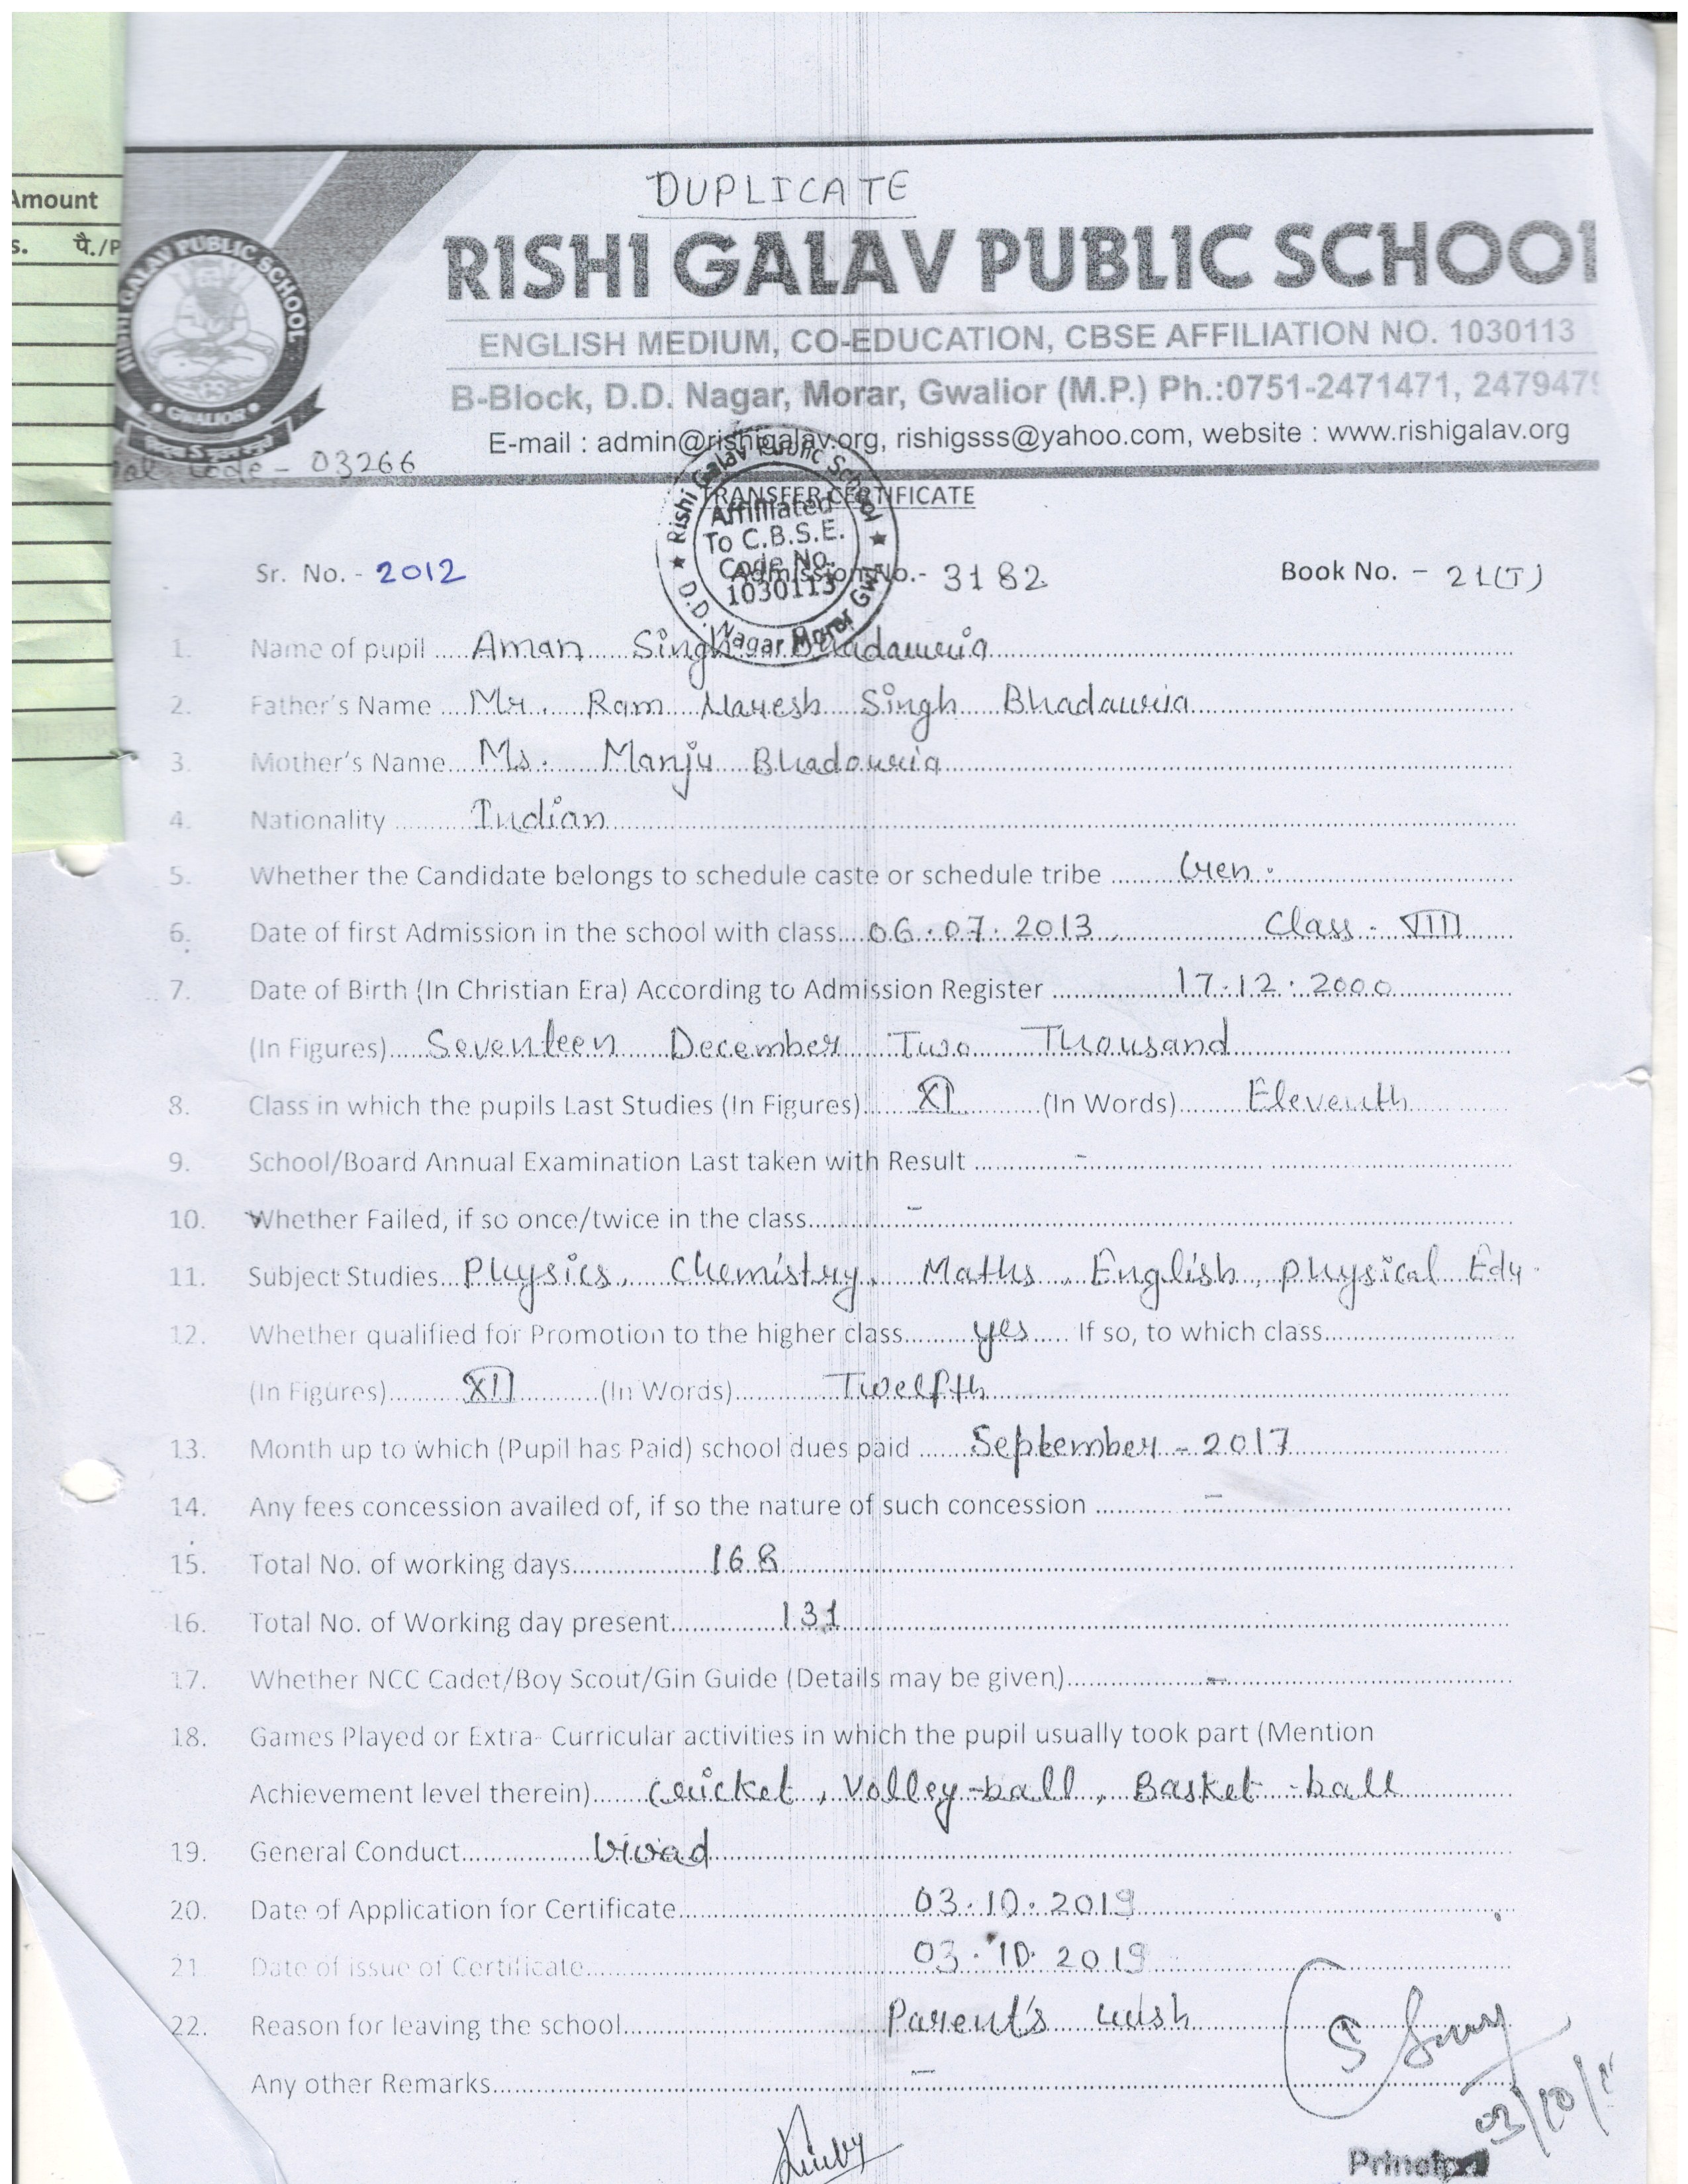 Amount
s. पै./P
DUPLICATE
RISHI GALAV PUBLIC SCHOOL
ENGLISH MEDIUM, CO-EDUCATION, CBSE AFFILIATION NO. 1030113
B-Block, D.D. Nagar, Morar, Gwalior (M.P.) Ph.:0751-2471471, 2479479
E-mail : admin@rishigalav.org, rishigsss@yahoo.com, website : www.rishigalav.org
RISHI GALAV PUBLIC SCHOOL
GWALIOR
Code - 03266
TRANSFER CERTIFICATE
Rishi Galav Public School
Affiliated
To C.B.S.E.
Code No.
1030113
D.D. Nagar Morar Gwl
Sr. No. - 2012 Admission No.- 3182 Book No. - 21(T)
1. Name of pupil Aman Singh Bhadauria
2. Father's Name Mr. Ram Naresh Singh Bhadauria
3. Mother's Name Ms. Manju Bhadouria
4. Nationality Indian
5. Whether the Candidate belongs to schedule caste or schedule tribe Gen.
6. Date of first Admission in the school with class 06.07.2013 Class - VIII
7. Date of Birth (In Christian Era) According to Admission Register 17.12.2000
(In Figures) Seventeen December Two Thousand
8. Class in which the pupils Last Studies (In Figures) XI (In Words) Eleventh
9. School/Board Annual Examination Last taken with Result -
10. Whether Failed, if so once/twice in the class -
11. Subject Studies Physics, Chemistry, Maths, English, physical Edu.
12. Whether qualified for Promotion to the higher class yes If so, to which class
(In Figures) XII (In Words) Twelfth
13. Month up to which (Pupil has Paid) school dues paid September - 2017
14. Any fees concession availed of, if so the nature of such concession -
15. Total No. of working days 168
16. Total No. of Working day present 131
17. Whether NCC Cadet/Boy Scout/Gin Guide (Details may be given) -
18. Games Played or Extra- Curricular activities in which the pupil usually took part (Mention
Achievement level therein) Cricket, Volley-ball, Basket-ball
19. General Conduct Good
20. Date of Application for Certificate 03.10.2019
21 Date of issue of Certificate 03.10.2019
22. Reason for leaving the school Parent's wish
Any other Remarks -
03/10/1
Principal